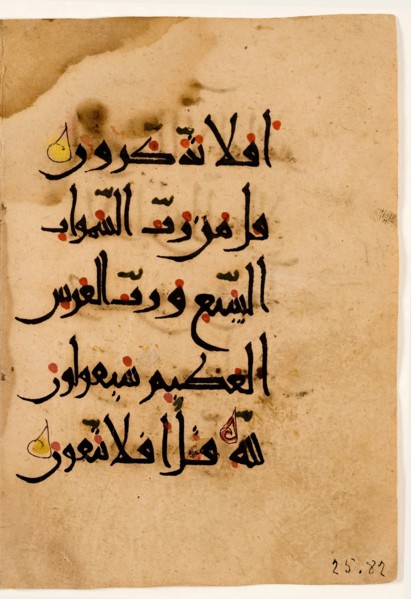 افلا تذكرون
قل من ربّ السّموات
السّبع وربّ العرش
العظيم سيقولون
لله قل افلا تتّقون
25.82